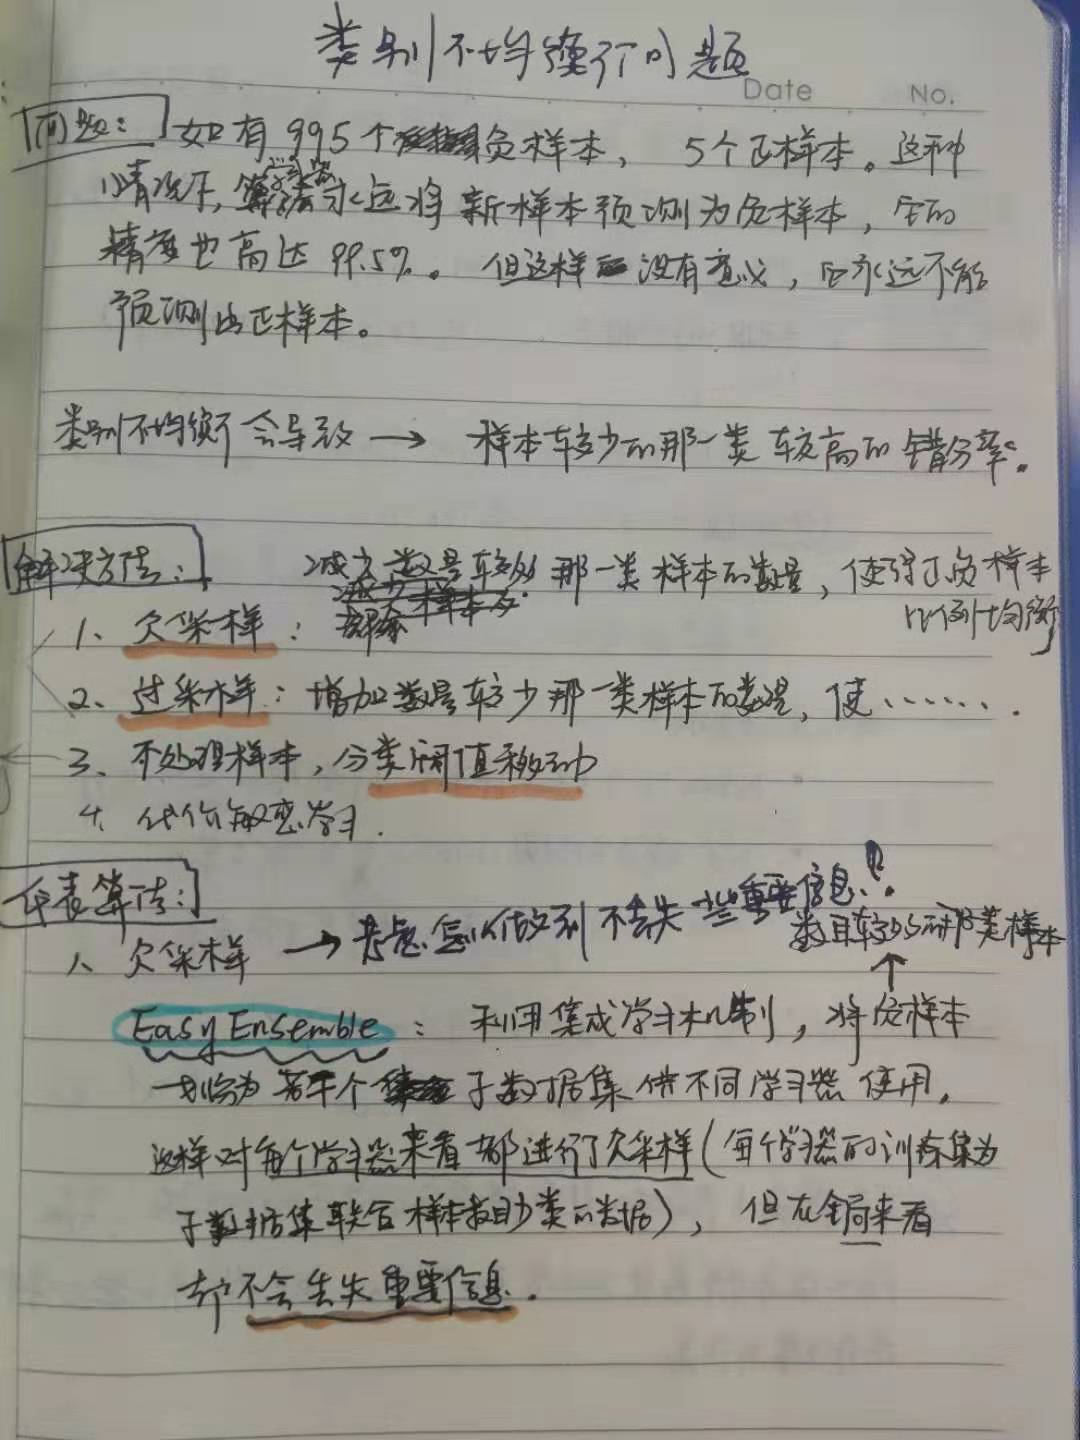 类别不均衡问题
Date No.
问题： 如有995个负样本， 5个正样本。这种
情况下，学习器永远将新样本预测为负样本，它的
精度也高达99.5%。但这样没有意义，它永远不能
预测出正样本。
类别不均衡会导致 → 样本较少的那一类较高的错分率。
解决方法：
1、欠采样： 减少数量较多那一类样本的数量，使得正负样本
比例均衡
2、过采样：增加数量较少那一类样本的数量，使…….
3、不处理样本，分类阈值移动
4、代价敏感学习.
代表算法：
1、欠采样 → 考虑怎么做到不丢失一些重要信息？！
数目较多的那类样本
↑
Easy Ensemble： 利用集成学习机制，将负样本
划分为若干个子数据集供不同学习器使用，
这样对每个学习器来看都进行了欠采样（每个学习器的训练集为
子数据集联合样本数目少类的数据），但在全局来看
却不会丢失重要信息.